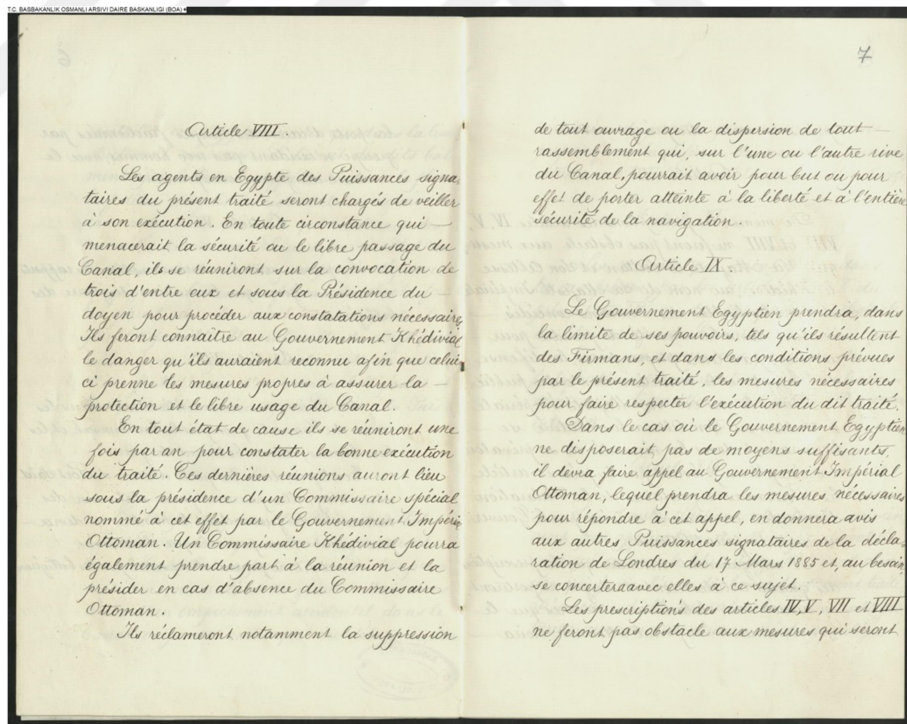 T.C. BASBAKANLIK OSMANLI ARSIVI DAIRE BASKANLIGI (BOA)
Article VIII.
Les agents en Egypte des Puissances signa
taires du présent traité seront chargés de veiller
à son exécution. En toute circonstance qui —
menacerait la sécurité ou le libre passage du
Canal, ils se réuniront sur la convocation de
trois d'entre eux et sous la Présidence du —
doyen pour procéder aux constatations nécessaires.
Ils feront connaître au Gouvernement Khédivial
le danger qu'ils auraient reconnu afin que celui
ci prenne les mesures propres à assurer la —
protection et le libre usage du Canal.
En tout état de cause ils se réuniront une
fois par an pour constater la bonne exécution
du traité. Ces dernières réunions auront lieu
sous la présidence d'un Commissaire spécial
nommé à cet effet par le Gouvernement Impérial
Ottoman. Un Commissaire Khédivial pourra
également prendre part à la réunion et la
présider en cas d'absence du Commissaire
Ottoman.
Ils réclameront notamment la suppression
7
de tout ouvrage ou la dispersion de tout —
rassemblement qui, sur l'une ou l'autre rive
du Canal, pourrait avoir pour but ou pour
effet de porter atteinte à la liberté et à l'entière
sécurité de la navigation.
Article IX.
Le Gouvernement Egyptien prendra, dans
la limite de ses pouvoirs, tels qu'ils résultent
des Firmans, et dans les conditions prévues
par le présent traité, les mesures nécessaires
pour faire respecter l'exécution du dit traité.
Dans le cas où le Gouvernement Egyptien
ne disposerait pas de moyens suffisants,
il devra faire appel au Gouvernement Impérial
Ottoman, lequel prendra les mesures nécessaires
pour répondre à cet appel, en donnera avis
aux autres Puissances signataires de la décla-
ration de Londres du 17 Mars 1885 et, au besoin,
se concertera avec elles à ce sujet.
Les prescriptions des articles IV, V, VII et VIII
ne feront pas obstacle aux mesures qui seront